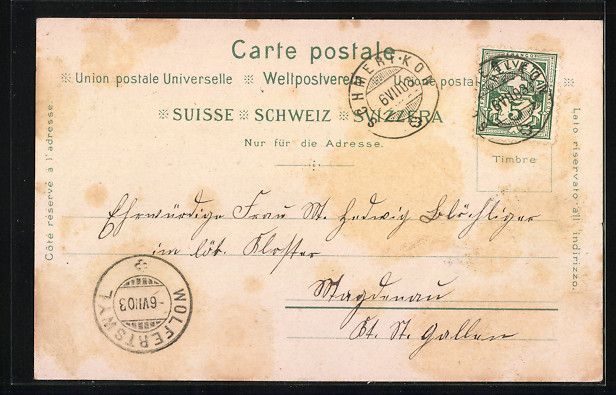 Carte postale
Union postale Universelle Weltpostverein Unione postale
SUISSE SCHWEIZ SVIZZERA
Nur für die Adresse.
SCHMERIKON
6 VII 03
HELVETIA
5
6 VII 03
Timbre
Côté réservé à l'adresse.
Lato riservato all indirizzo.
Ehrwürdige Frau M. Hedwig Blöchliger
im löb. Kloster
Magdenau
Kt. St. Gallen
WOLFERTSWYL
-6 VII 03